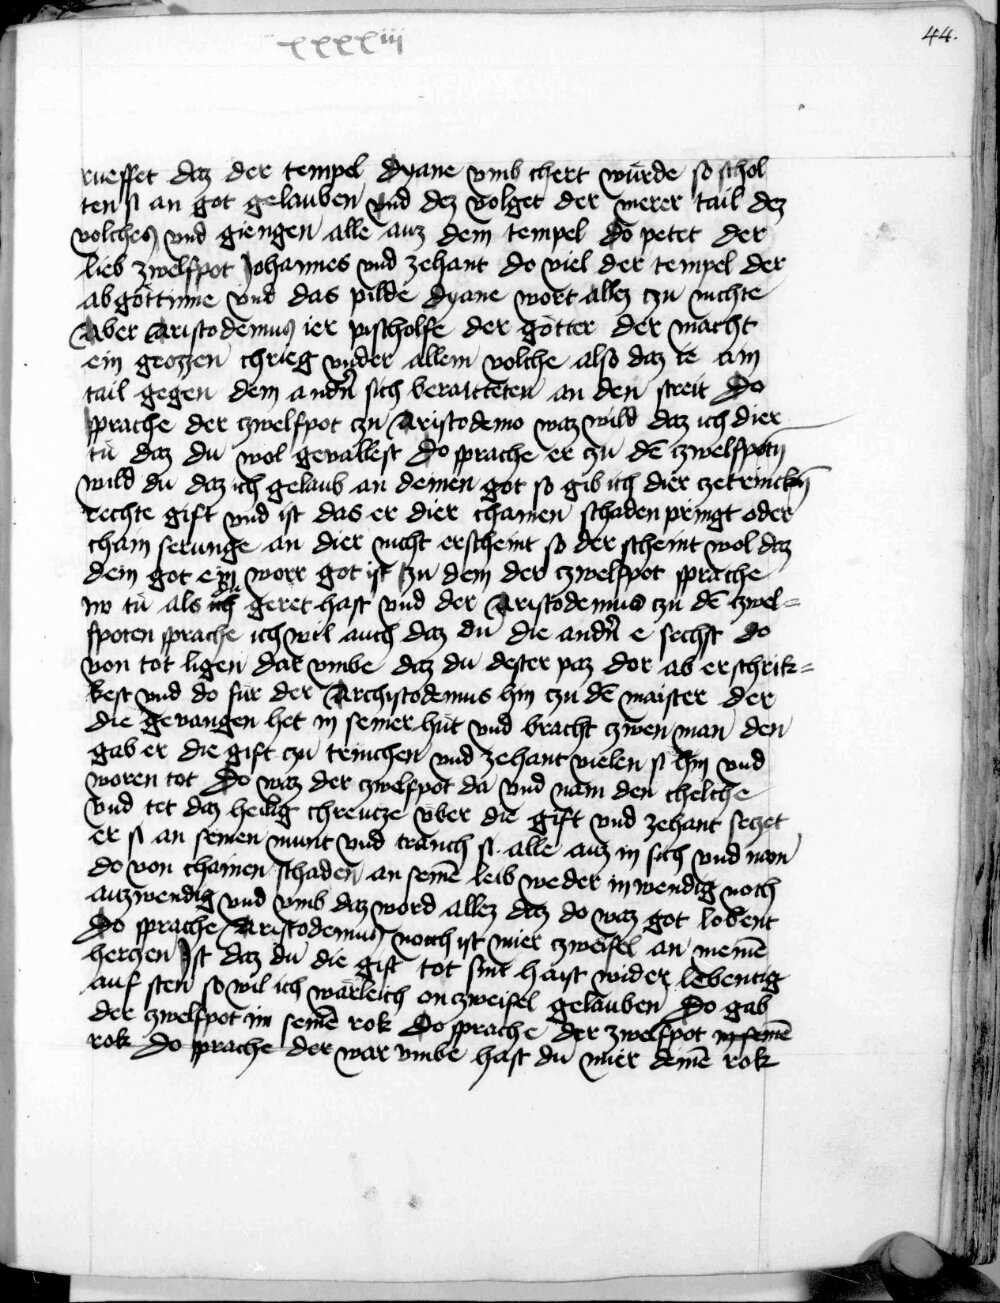 xxxxiij
44.
rueffet daz der tempel dyane vmb chert würde so schol
ten si an got gelauben vnd dez volget der merer tail dez
volches vnd giengen alle auz dem tempel do petet der
lieb zwelfpot Johannes vnd zehant do viel der tempel der
abgöttinne vnd das pilde dyane wort allez czu nichte
Aber Aristodemus ier pischolfe der götter der macht
ein grozzen chrieg vnder allem volche also daz ie ain
tail gegen dem andn̄ sich beraitteten an den streit Do
sprache der czwelfpot czu Aristodemo waz wild daz ich dier
tü daz du wol gevallest Do sprache er czu dē czwelfpotn̄
wild du daz ich gelaub an deinen got so gib ich dier cze trincken̄
rechte gift vnd ist das er dier chainen schaden pringt oder
chain serunge an dier nicht erscheint so der scheint wol daz
dein got ein worr got ist zu dem der czwelfpot sprache
nv tü als ich geret hast vnd der Aristodemus czu dē czwel=
fpoten sprache ich wil auch daz du die andn̄ e sechst do
von tot ligen dar vmbe daz du dester paz dor ab erschrik=
kest vnd do für der Archistodemus hin czu dē maister der
die gevangen het in seiner hüt vnd bracht czwen man den
gab er die gift czu trinchen vnd zehant vielen si hin vnd
woren tot Do waz der czwelfpot da vnd nam den chelche
vnd tet daz heilig chreucze vber die gift vnd zehant seczet
er si an seinen munt vnd tranch si alle auz in sich vnd nam
do von chainen schaden an seinē leib weder inwendig noch
auzwendig vnd vmb daz word allez daz do waz got lobent
Do sprache Aristodemus noch ist mier czweifel an meinē
herczen Ist daz du die gift tot sint haist wider lebentig
auf sten so wil ich wärleich on czweifel gelauben Do gab
der zwelfpot im seinē rok Do sprache der zwelfpot in seinē
rok Do sprache der war vmbe hast du mier deinē rok